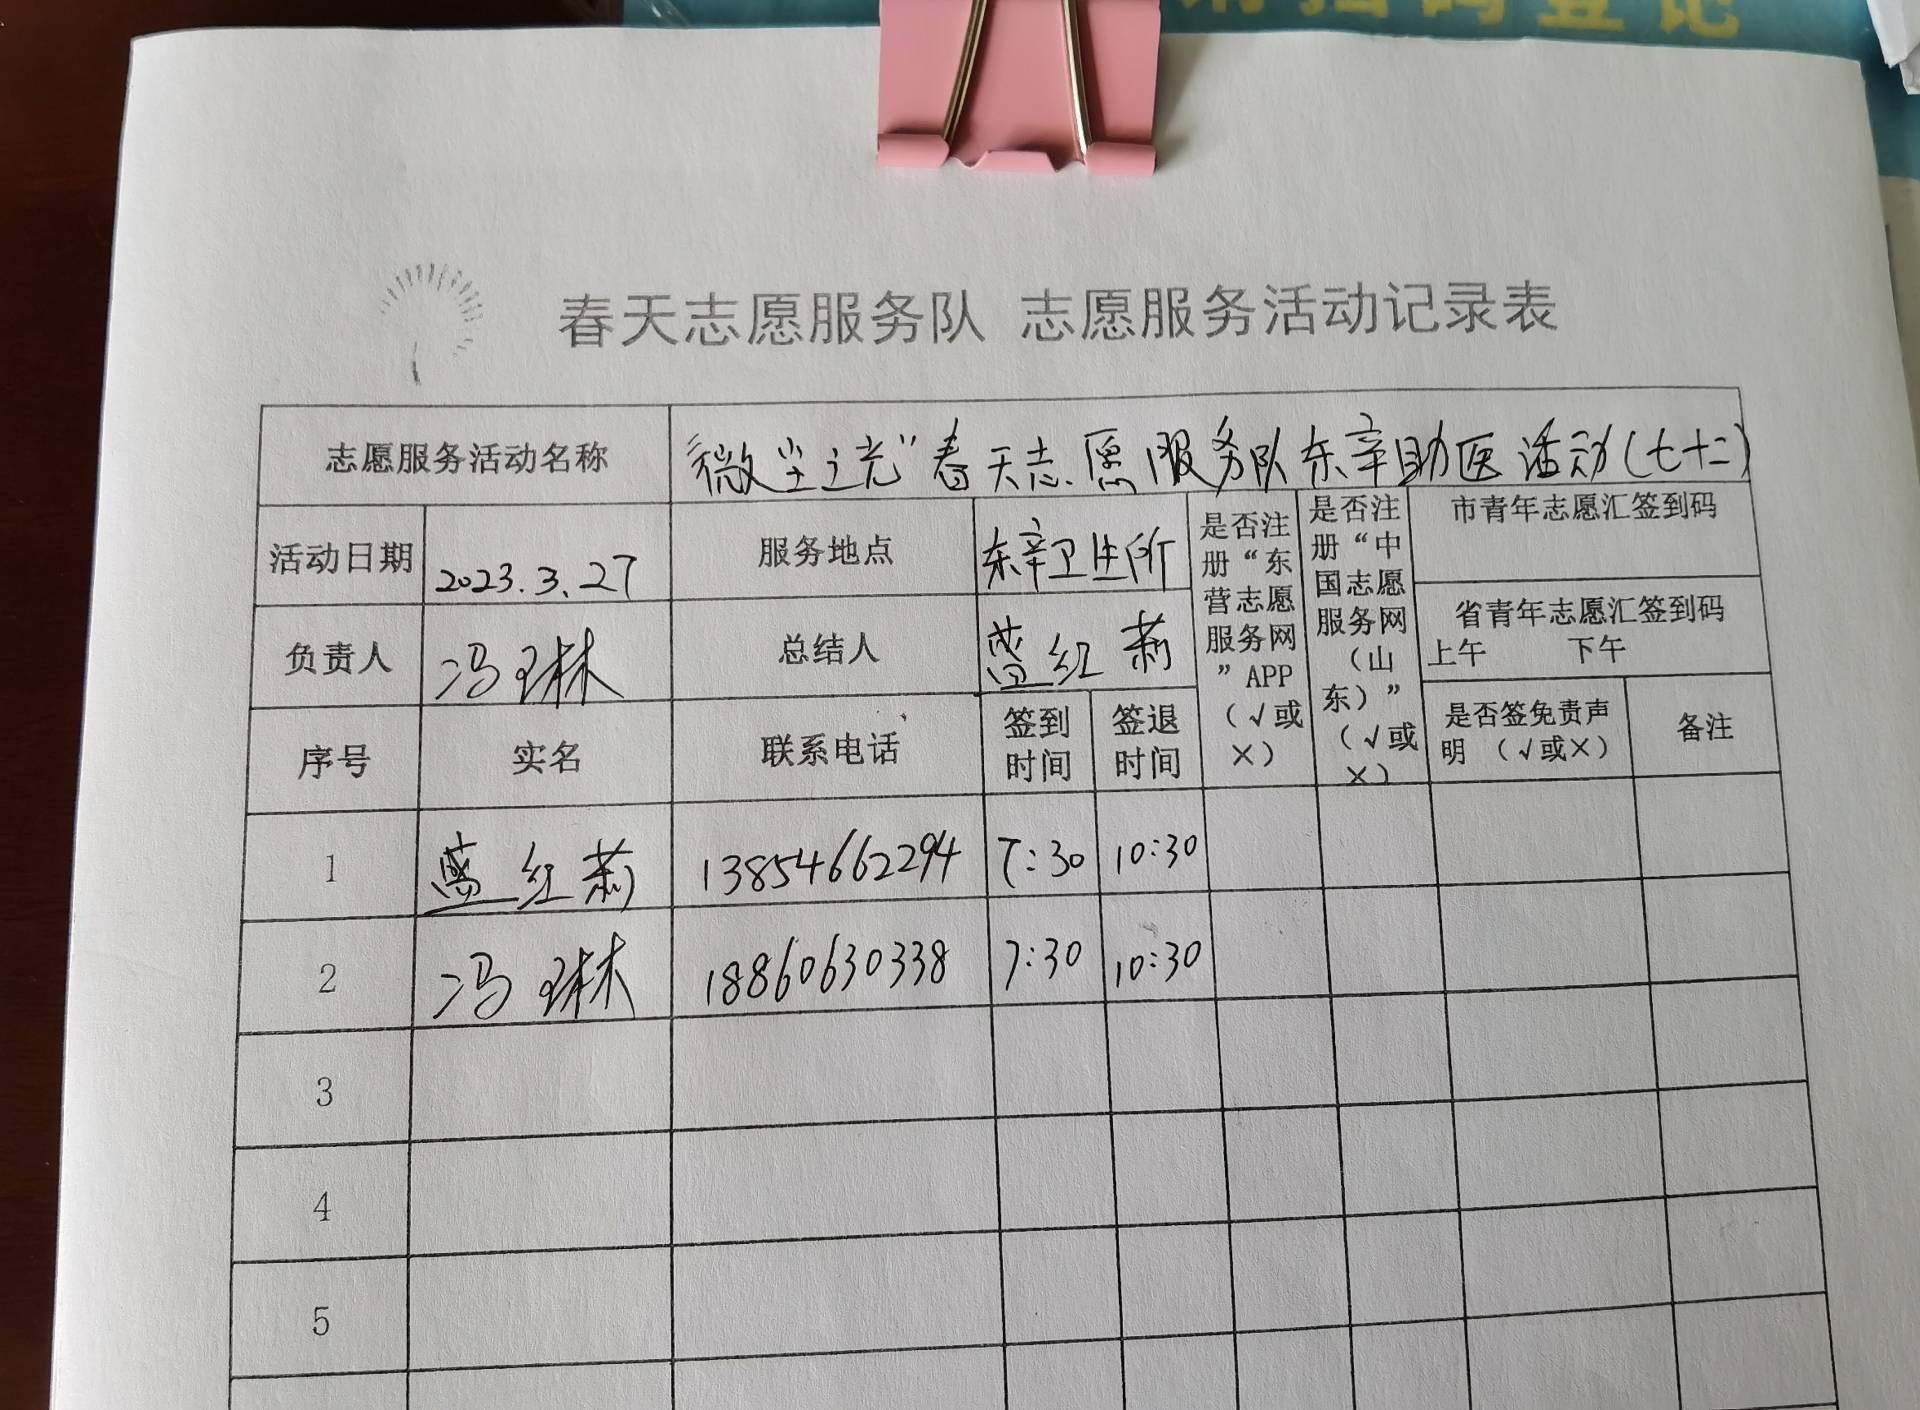 春天志愿服务队 志愿服务活动记录表
志愿服务活动名称 “微尘之光”春天志愿服务队东辛助医活动(七十二)
活动日期 2023.3.27 服务地点 东辛卫生所
是否注册“东营志愿服务网”APP(√或×)
是否注册“中国志愿服务网(山东)”(√或×)
市青年志愿汇签到码
省青年志愿汇签到码
上午 下午
负责人 冯琳 总结人 红莉
序号 实名 联系电话 签到时间 签退时间 是否签免责声明 (√或×) 备注
1 红莉 13854662294 7:30 10:30
2 冯琳 18860630338 7:30 10:30
3
4
5